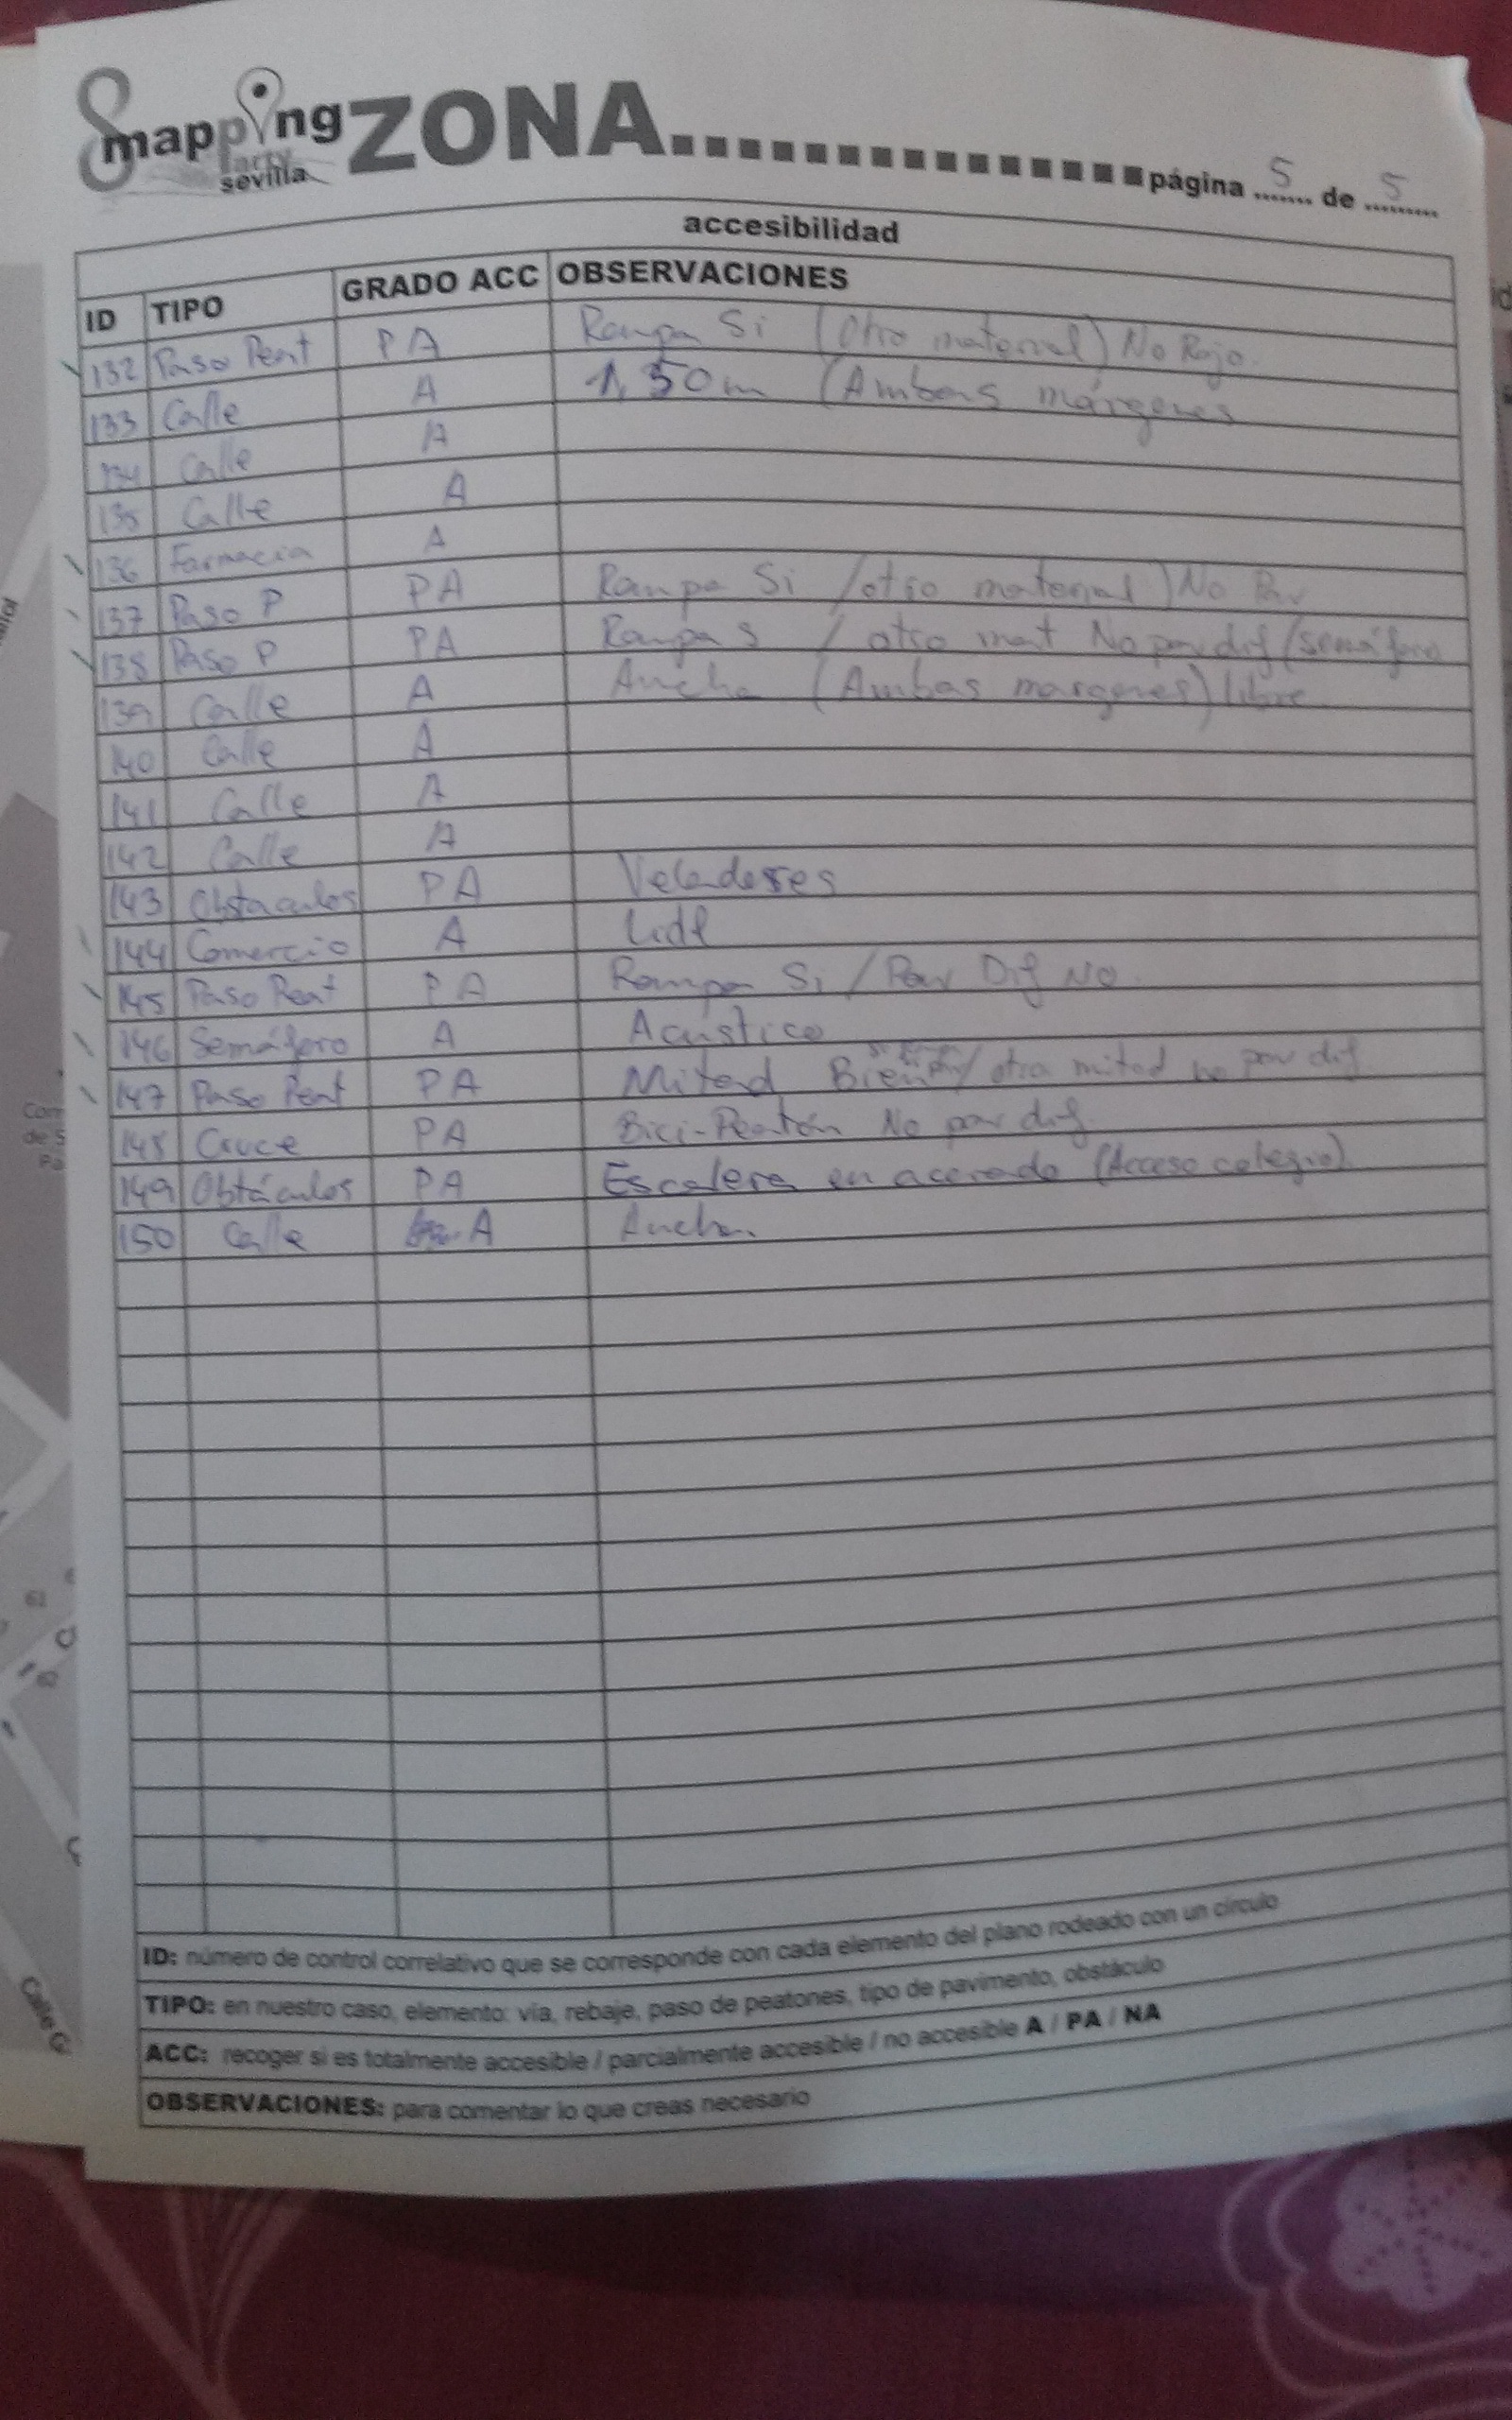 mapping ZONA página 5 de 5
party
sevilla
accesibilidad
ID TIPO GRADO ACC OBSERVACIONES
132 Paso Peat PA Rampa Si (Otro material) No Rojo.
133 Calle A 1,50m (Ambas márgenes
134 Calle A
135 Calle A
136 Farmacia A
137 Paso P PA Rampa Si /otro material) No Pav
138 Paso P PA Rampa S / otro mat No pav dif (semáforo
139 Calle A Ancha (Ambas margenes) libre
140 Calle A
141 Calle A
142 Calle A
143 Obstaculos PA Veladores
144 Comercio A Lidl
145 Paso Peat PA Rampa Si / Pav Dif NO
146 Semáforo A Acústico
147 Paso Peat PA Mitad Bien / otra mitad no pav dif
148 Cruce PA Bici-Peatón No pav dif.
149 Obtáculos PA Escalera en acerado (Acceso colegio).
150 Calle A Ancha.
ID: número de control correlativo que se corresponde con cada elemento del plano rodeado con un círculo
TIPO: en nuestro caso, elemento: vía, rebaje, paso de peatones, tipo de pavimento, obstáculo
ACC: recoger si es totalmente accesible / parcialmente accesible / no accesible A / PA / NA
OBSERVACIONES: para comentar lo que creas necesario